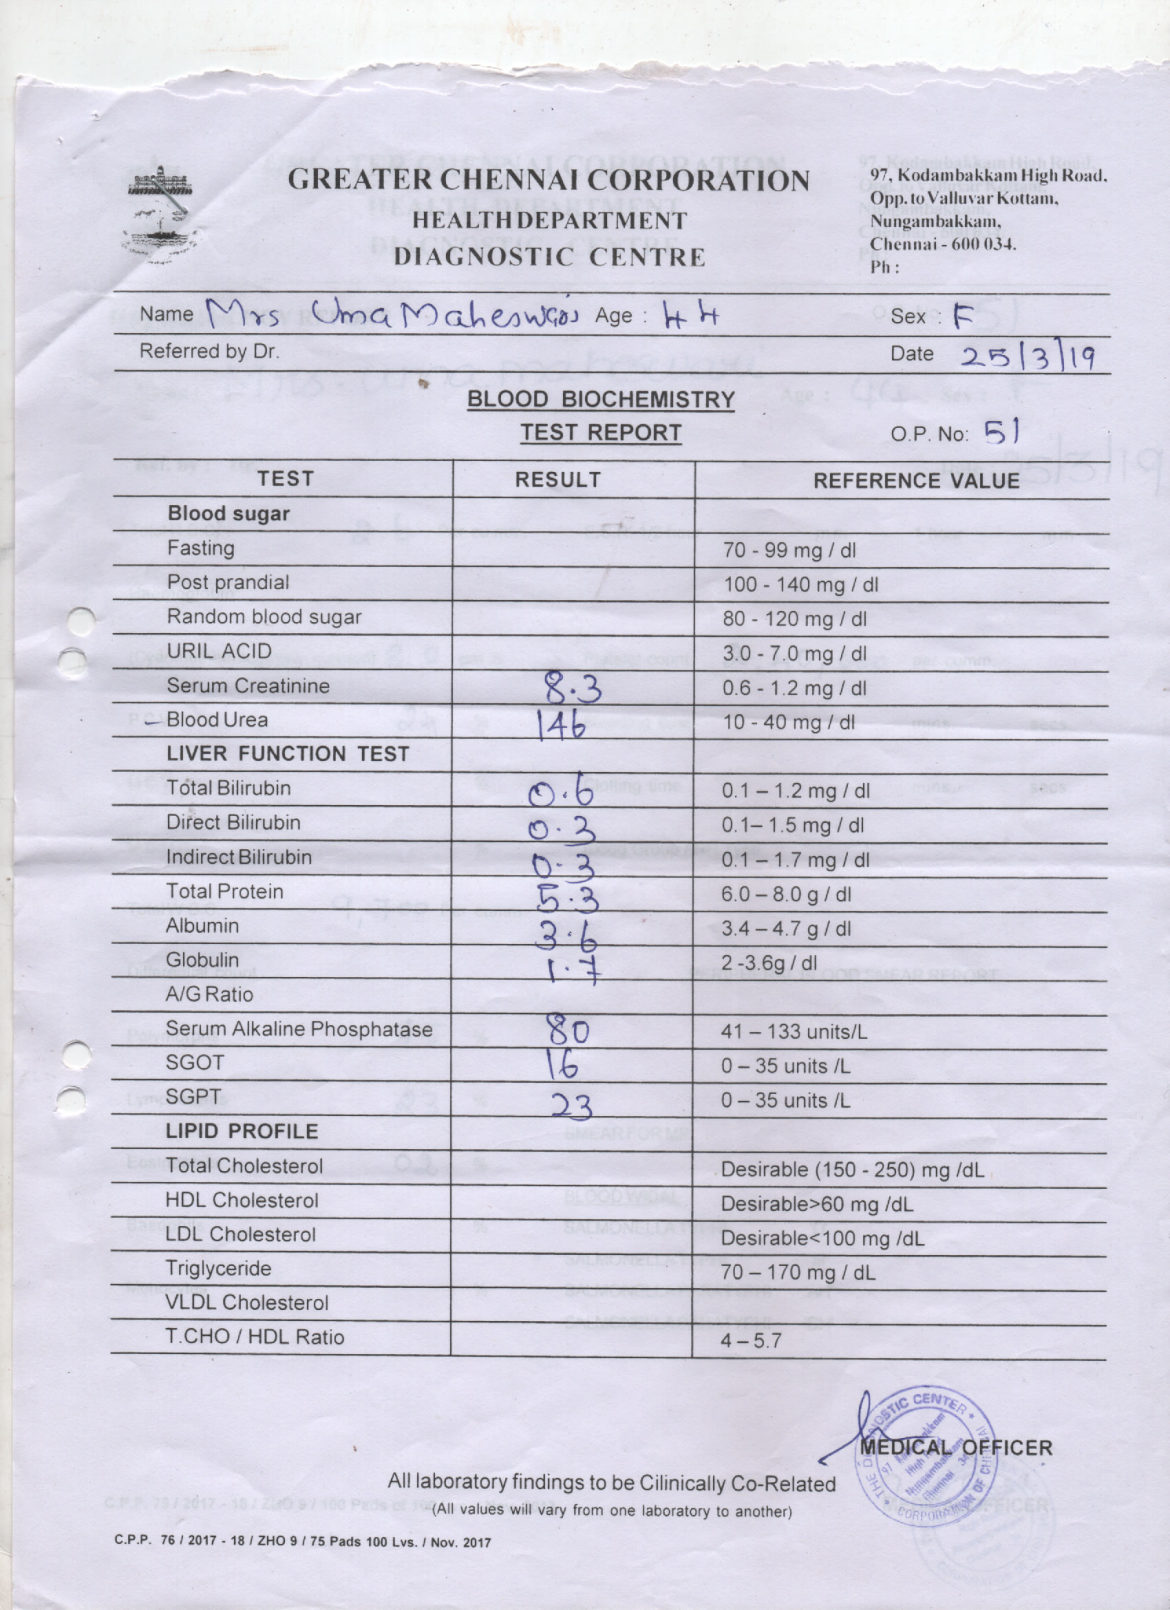 GREATER CHENNAI CORPORATION
HEALTH DEPARTMENT
DIAGNOSTIC CENTRE
97, Kodambakkam High Road,
Opp. to Valluvar Kottam,
Nungambakkam,
Chennai - 600 034.
Ph :
Name Mrs Uma Maheswari Age : 44 Sex : F
Referred by Dr. Date 25/3/19
BLOOD BIOCHEMISTRY
TEST REPORT O.P. No: 51
TEST RESULT REFERENCE VALUE
Blood sugar
Fasting 70 - 99 mg / dl
Post prandial 100 - 140 mg / dl
Random blood sugar 80 - 120 mg / dl
URIL ACID 3.0 - 7.0 mg / dl
Serum Creatinine 8.3 0.6 - 1.2 mg / dl
Blood Urea 146 10 - 40 mg / dl
LIVER FUNCTION TEST
Total Bilirubin 0.6 0.1 – 1.2 mg / dl
Direct Bilirubin 0.3 0.1– 1.5 mg / dl
Indirect Bilirubin 0.3 0.1 – 1.7 mg / dl
Total Protein 5.3 6.0 – 8.0 g / dl
Albumin 3.6 3.4 – 4.7 g / dl
Globulin 1.7 2 -3.6g / dl
A/G Ratio
Serum Alkaline Phosphatase 80 41 – 133 units/L
SGOT 16 0 – 35 units /L
SGPT 23 0 – 35 units /L
LIPID PROFILE
Total Cholesterol Desirable (150 - 250) mg /dL
HDL Cholesterol Desirable>60 mg /dL
LDL Cholesterol Desirable<100 mg /dL
Triglyceride 70 – 170 mg / dL
VLDL Cholesterol
T.CHO / HDL Ratio 4 – 5.7
THE DIAGNOSTIC CENTER
CORPORATION OF CHENNAI
97 Kodambakkam
High Road
Nungambakkam
Chennai 34
MEDICAL OFFICER
All laboratory findings to be Cilinically Co-Related
(All values will vary from one laboratory to another)
C.P.P. 76 / 2017 - 18 / ZHO 9 / 75 Pads 100 Lvs. / Nov. 2017